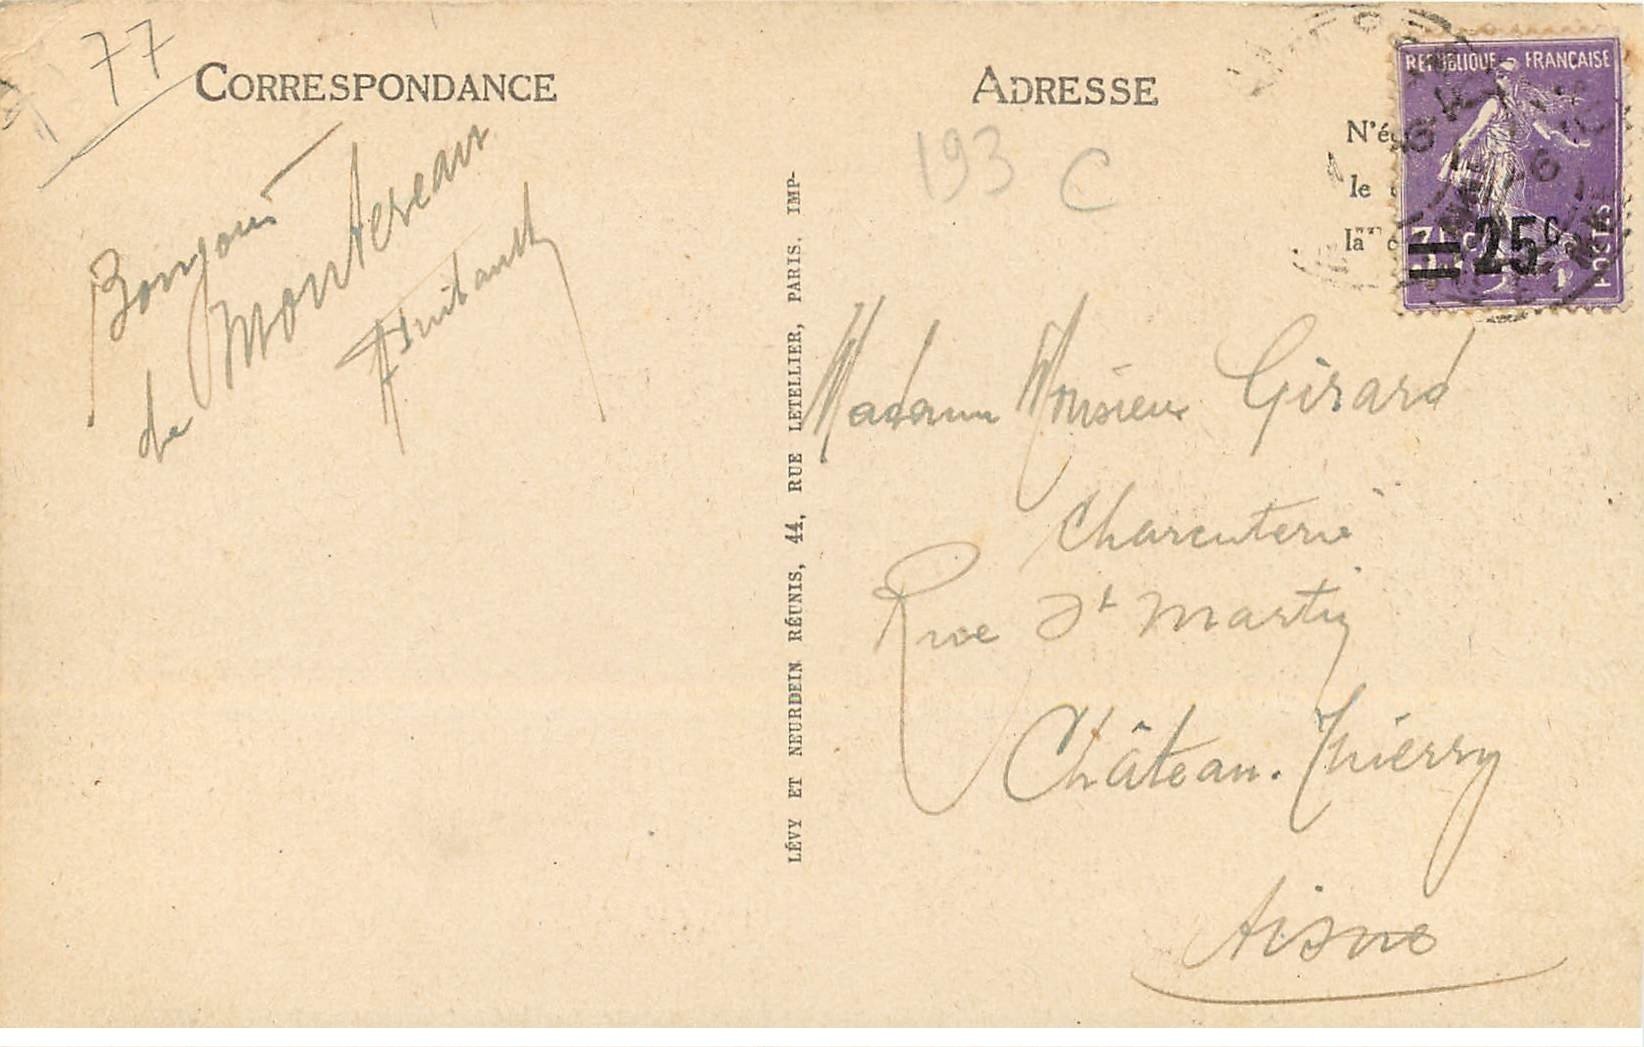 77
CORRESPONDANCE
Bonjour
de Montereau
LÉVY ET NEURDEIN RÉUNIS, 44, RUE LETELLIER, PARIS. IMP-
ADRESSE
193 C
N'é
le
la
REPUBLIQUE FRANÇAISE
25c
POSTES
Madame Monsieur Girard
Charcuterie
Rue St Martin
Château-Thierry
Aisne